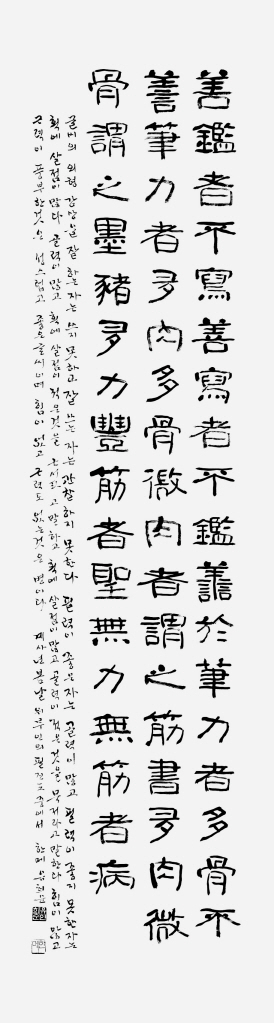 善鑑者不寫善寫者不鑑譱於筆力者多骨不
善筆力者多肉多骨微肉者謂之筋書多肉微
骨謂之墨豬多力豐筋者聖無力無筋者病
글씨의 외형 감상을 잘 하는 자는 쓰지 못하고 잘 쓰는 자는 관찰하지 못한다 필력이 좋은 자는 골력이 많고 필력이 좋지 못한 자는
획에 살점이 많다 골력이 많고 획에 살점이 적은 것을 근서라고 말하고 획에 살점이 많고 골력이 적은 것을 묵저라고 말한다 힘이 많고
근력이 풍부한 것은 성스럽고 좋은 글씨이며 힘이 없고 근력도 없는 것은 병이다 계사년 봄날 위부인의 필진도 중에서